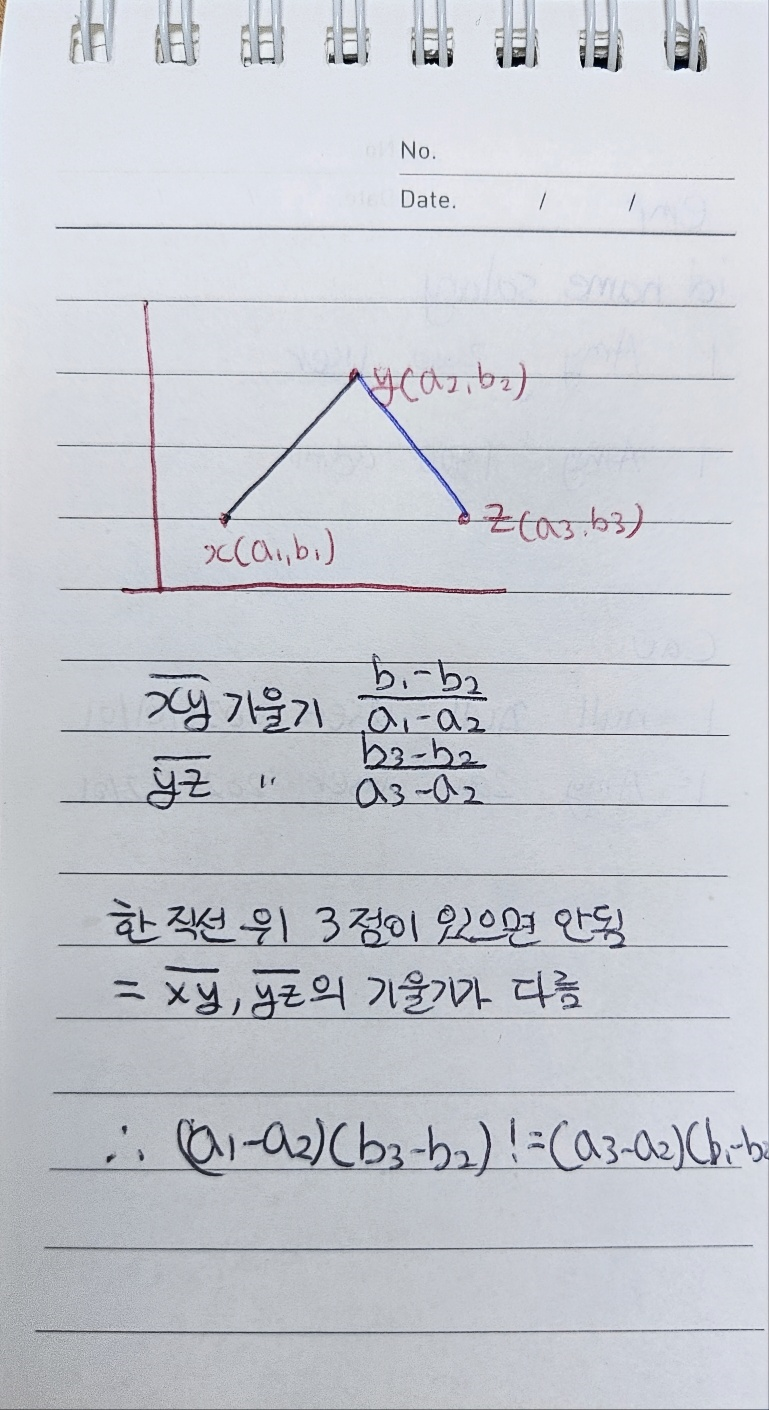 No.
Date. / /
y(a2,b2)
z(a3,b3)
x(a1,b1)
xy 기울기 b1-b2
a1-a2
yz " b3-b2
a3-a2
한 직선 위 3점이 있으면 안됨
= xy, yz의 기울기가 다름
∴ (a1-a2)(b3-b2) != (a3-a2)(b1-b2